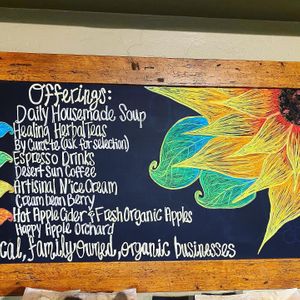 Offerings:
Daily Housemade Soup
Healing Herbal Teas
By Curate (ask for selection)
Espresso Drinks
Desert Sun Coffee
Artisinal N'ice Cream
Cream bean Berry
Hot Apple Cider & Fresh Organic Apples
Happy Apple Orchard
cal, family owned, organic businesses